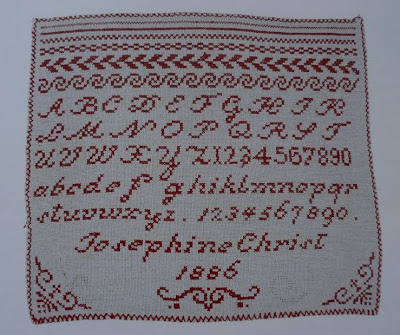 A B C D E F G H I K
L M N O P Q R S T
U V W X Y Z 1234567890
abcdef ghiklmnopqr
stuvwxyz. 1234567890.
Josephine Christ
1886